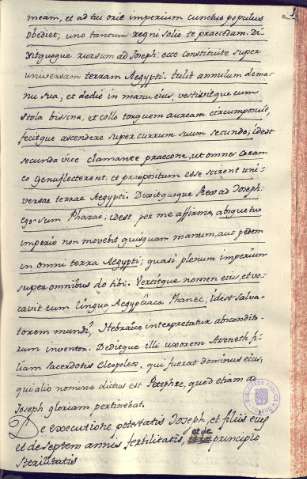 meam, et ad tui oris imperium cunctus populus
obediet; uno tantum regni solio te praecedam. Di-
xitque rursum ad Joseph: ecce Constitui te super
universam terram Aegypti. tulit annulum de ma-
nu sua, et dedit in manu eius, vestivitque eum
stola bissina, et collo torquem auream circumposuit,
fecitque ascendere super currum suum secundo; idest
secunda vice clamante praecone, ut omnes coram
eo genuflecterent, et praepositum esse scirent uni-
versae terrae Aegypti. Dixitque Rex ad Joseph.
Ego sum Pharao; idest per me affirmo, absque tuo
imperio non movebit quisquam manum, aut pedem
in omni terra Aegypti; quasi plenum imperium
super omnibus do tibi. Vertitque nomen eius, et vo-
cavit eum lingua Aegyptiaca Phanec, idest Salva-
torem mundi, Hebraice interpretatur abscondito-
rum inventor. Deditque illi uxorem Aseneth fi-
liam Sacerdotis Eleopoleos, qui fuerat dominus eius,
qui alio nomine dictus est Putiphre, quod etiam ad
Joseph gloriam pertinebat.
De executione potestatis Joseph, et filiis eius
et de septem annis fertilitatis, et de principio
Sterilitatis